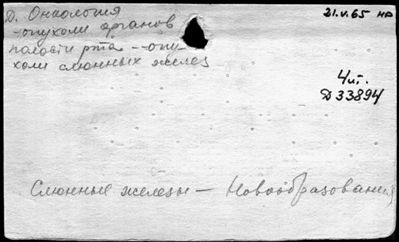 Д. Онкология
21.V.65 нр
-опухоли органов
полости рта -- опу-
холи слюнных желез
4ит.
Д33894
Слюнные железы — Новообразования